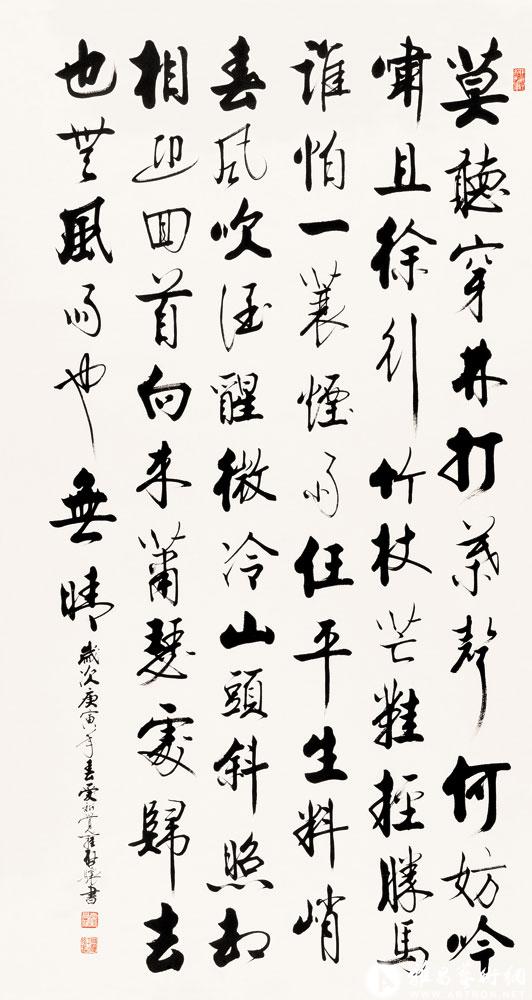 莫聽穿林打葉聲何妨吟
嘯且徐行竹杖芒鞋輕勝馬
誰怕一蓑煙雨任平生料峭
春風吹酒醒微冷山頭斜照却
相迎回首向來蕭瑟處歸去
也無風雨也無晴
歲次庚寅年春 書
雅昌藝術網